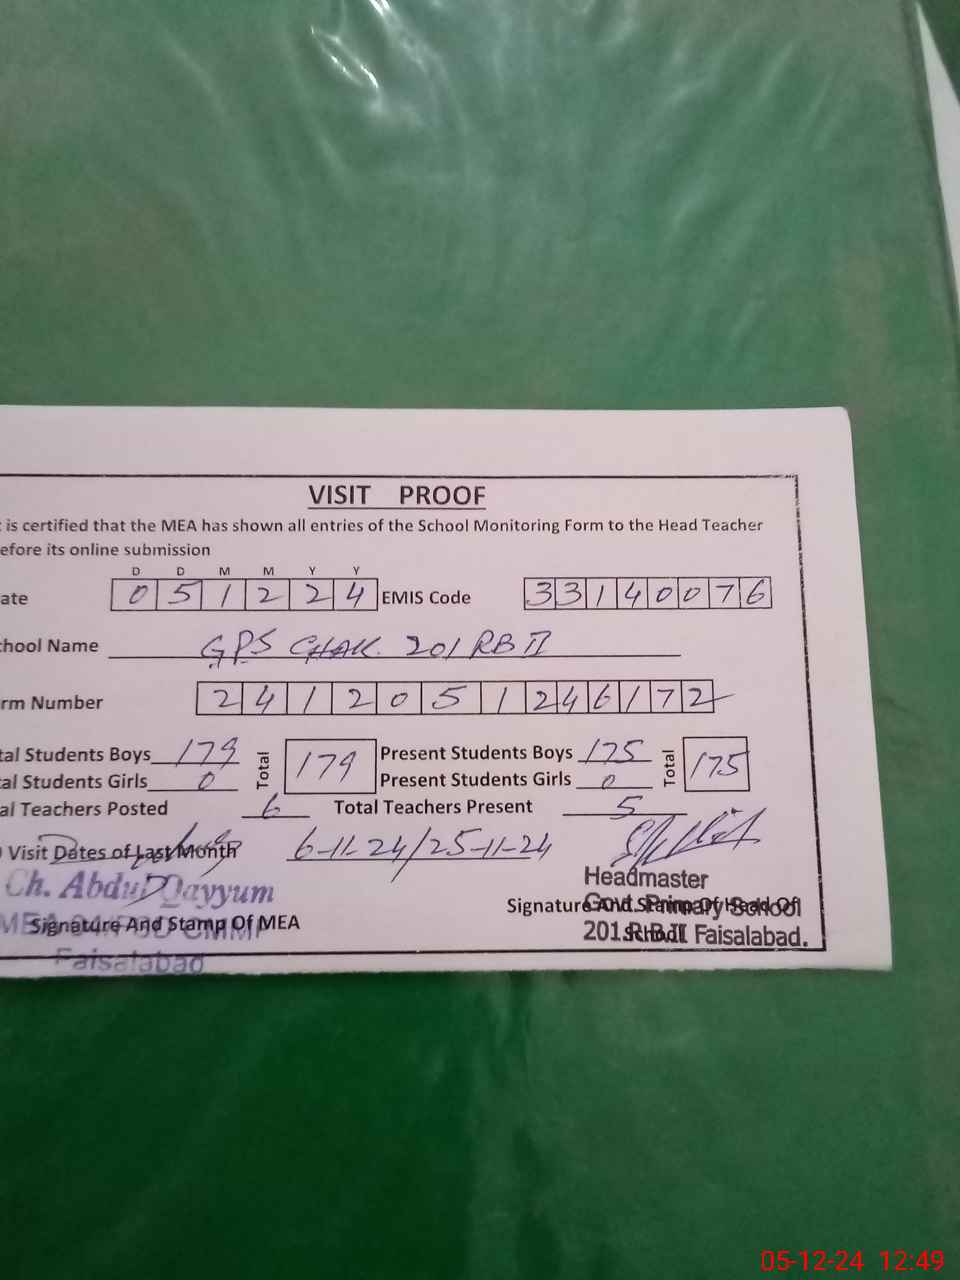 VISIT PROOF
is certified that the MEA has shown all entries of the School Monitoring Form to the Head Teacher
efore its online submission
D D M M Y Y
ate 0 5 1 2 2 4 EMIS Code 3 3 1 4 0 0 7 6
chool Name GPS CHAK. 201 RB II
rm Number 2 4 1 2 0 5 1 2 4 6 1 7 2
tal Students Boys 179 Total 179 Present Students Boys 175 Total 175
al Students Girls 0 Present Students Girls 0
al Teachers Posted 6 Total Teachers Present 5
Visit Dates of Last Month 6-11-24/25-11-24
Ch. Abdul Qayyum
Headmaster
Signature And Stamp Of Head Of
Govt. Primary School
Signature And Stamp Of MEA
School
201 R.B.II Faisalabad.
Faisalabad
05-12-24 12:49